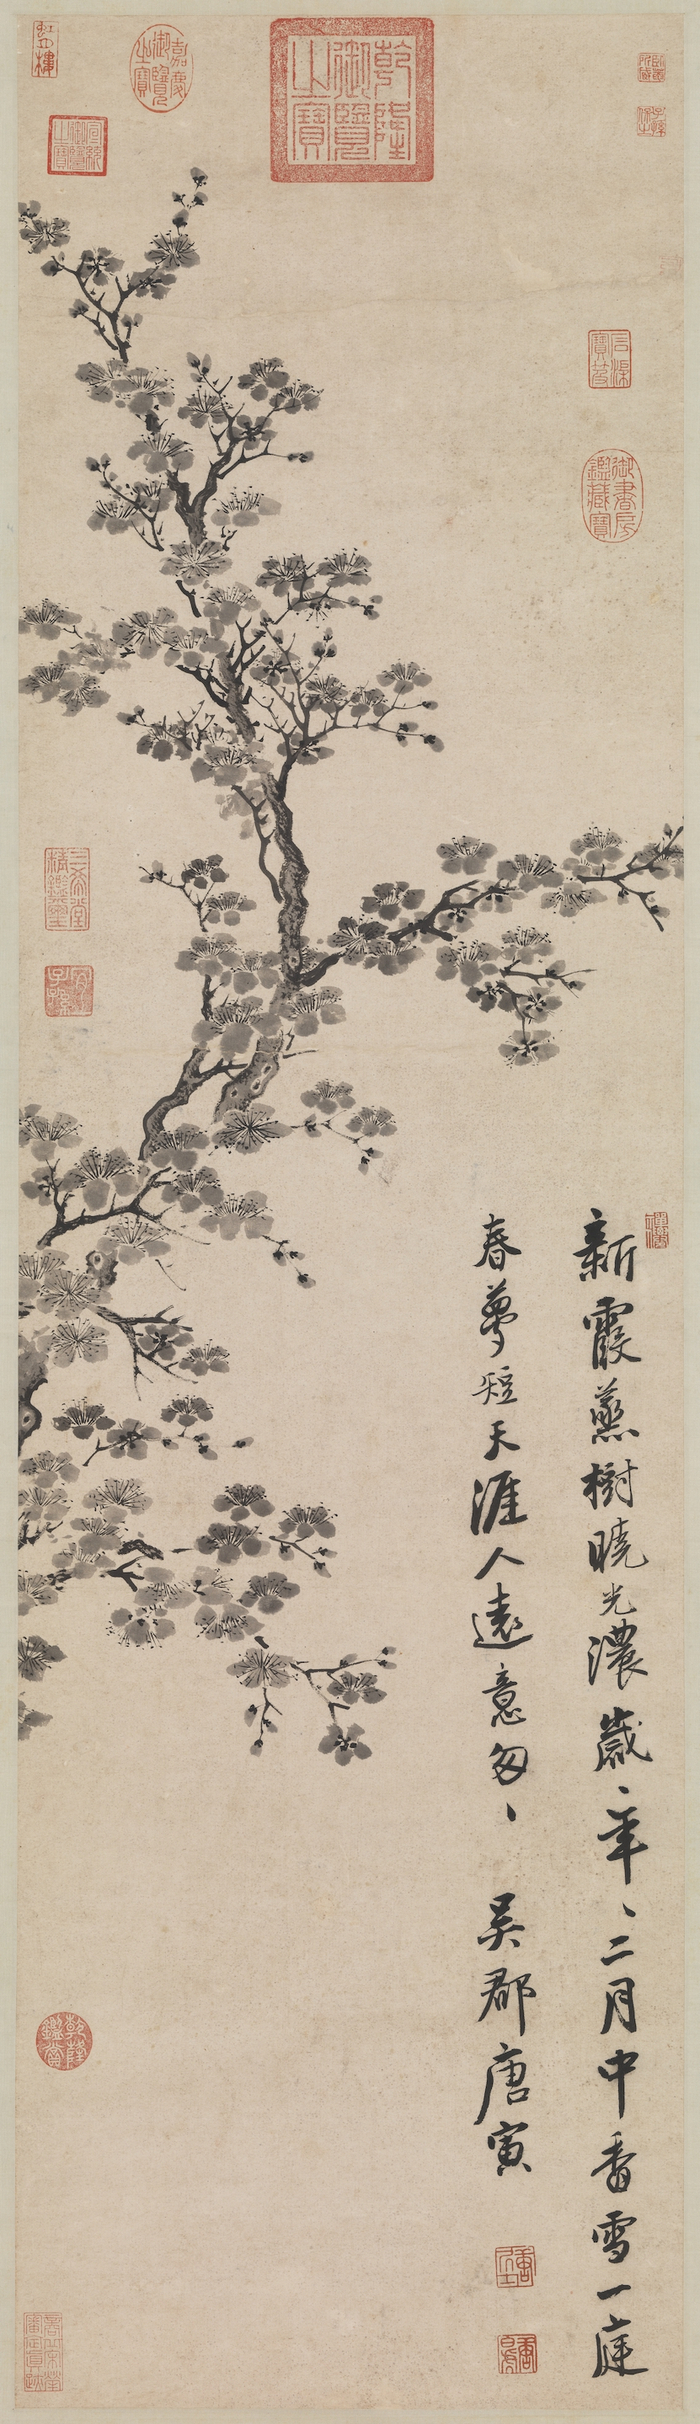 新霞蒸樹曉光濃歲、年、二月中香雪一庭
春夢短天涯人遠意匆、 吳郡唐寅
乾隆御覽之寶
嘉慶御覽之寶
宣統御覽之寶
石渠寶笈
御書房鑑藏寶
三希堂精鑑璽
宜子孫
乾隆鑑賞